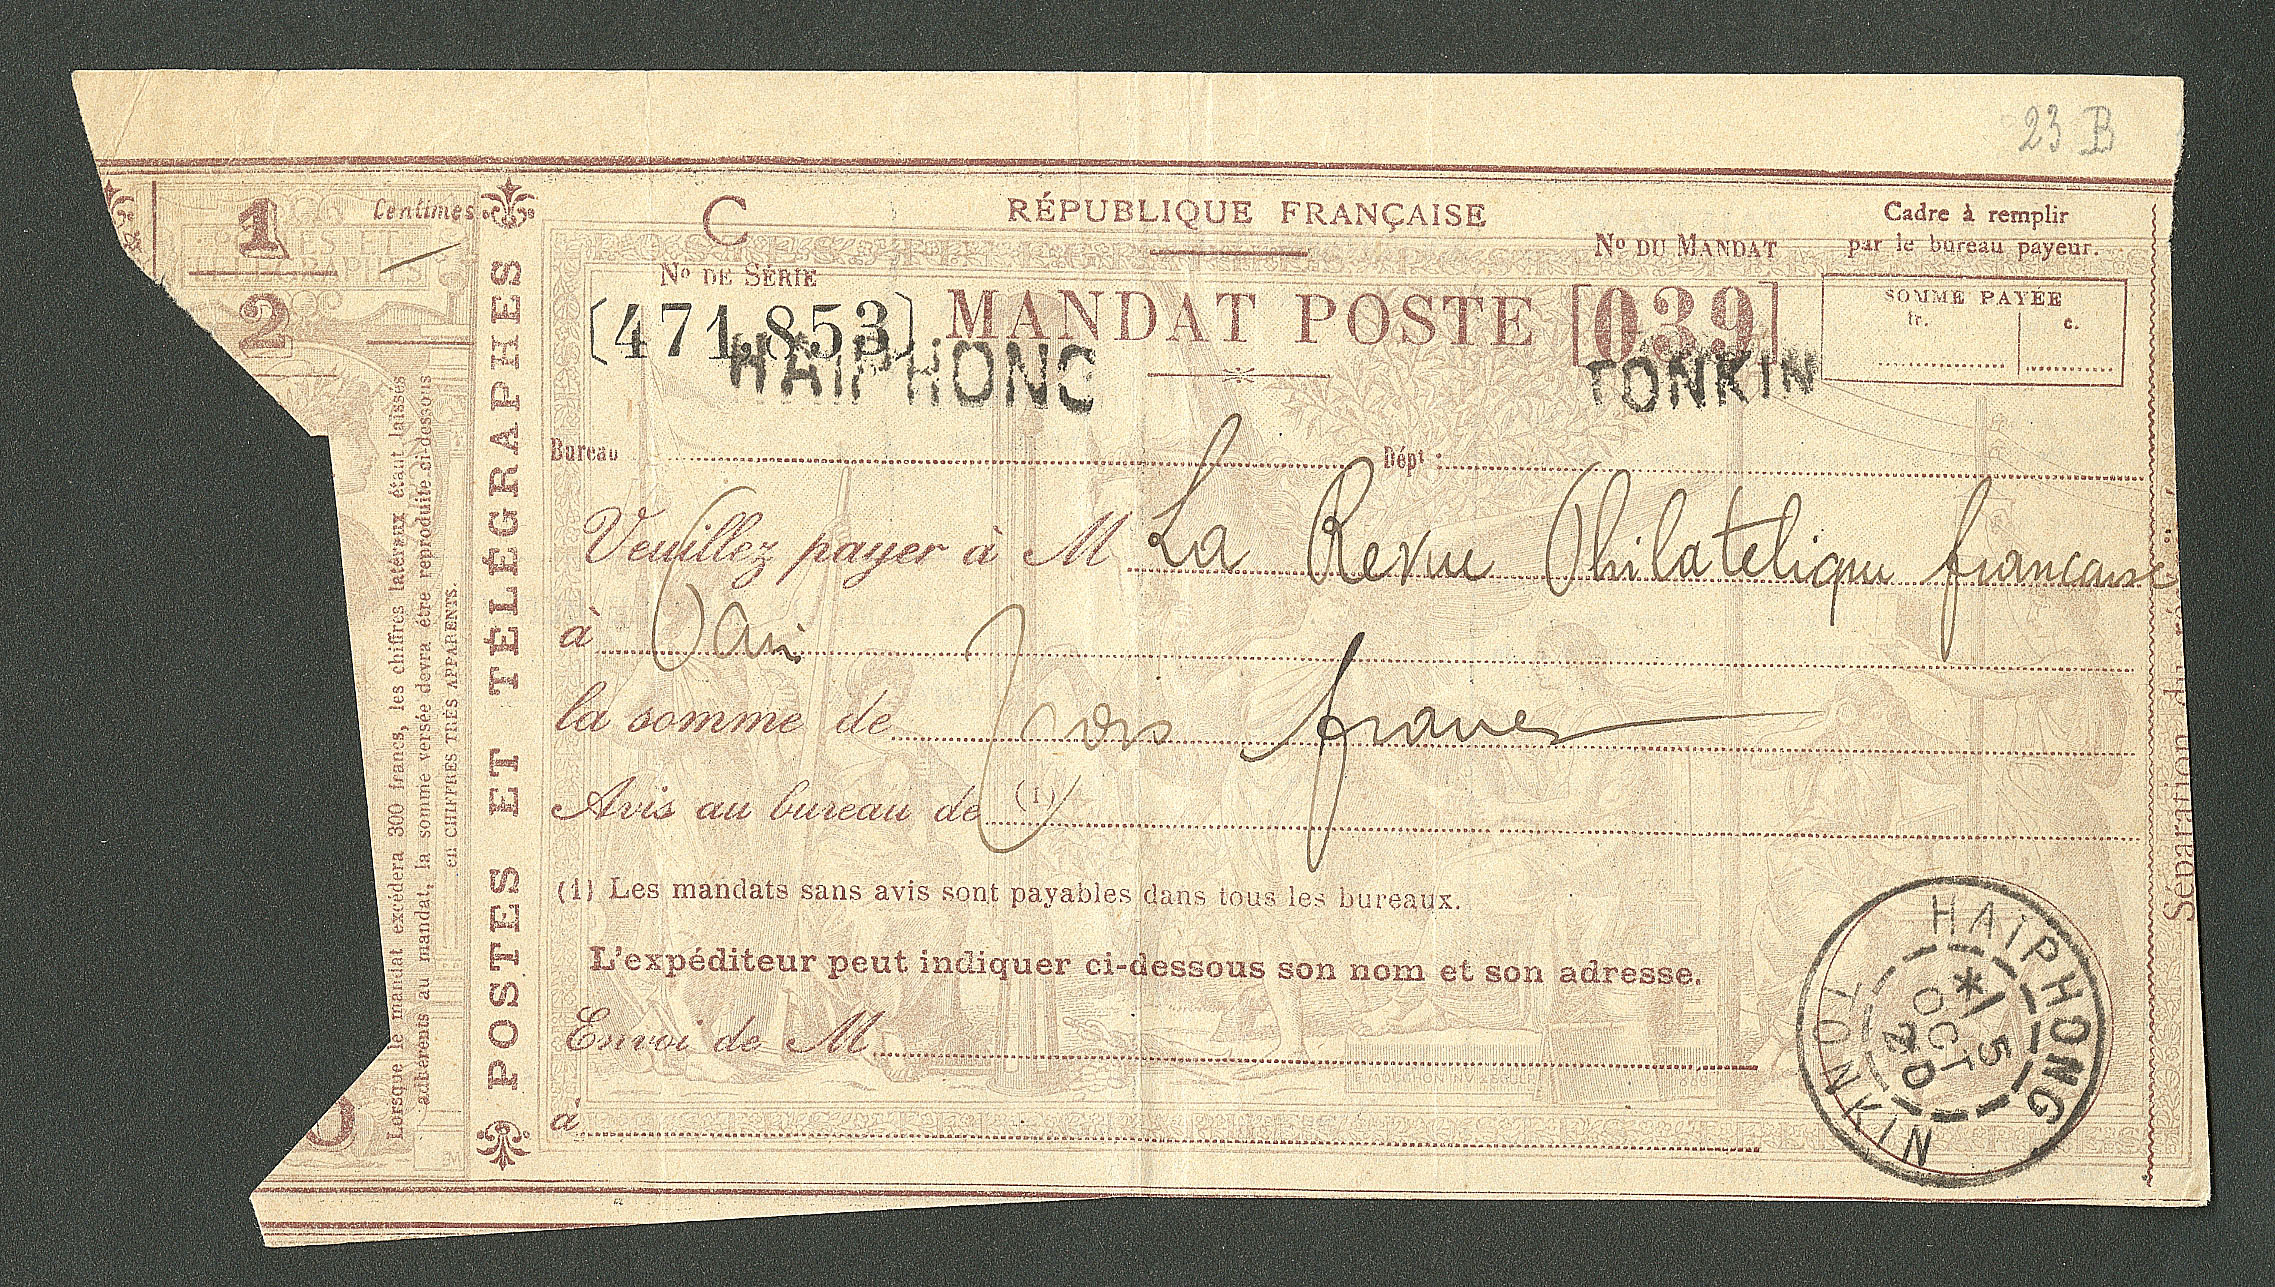 23 B
1
2
Centimes
Lorsque le mandat excédera 300 francs, les chiffres latéraux étant laissés
adhérents au mandat, la somme versée devra être reproduite ci-dessous
en CHIFFRES TRÈS APPARENTS.
POSTES ET TÉLÉGRAPHES
C
RÉPUBLIQUE FRANÇAISE
No DE SÉRIE
[471.853]
MANDAT POSTE
No DU MANDAT
[039]
Cadre à remplir
par le bureau payeur.
SOMME PAYÉE
fr. c.
HAIPHONG TONKIN
Bureau Dépt :
Veuillez payer à M La Revue Philatelique francaise
à Paris
la somme de Trois francs
Avis au bureau de (1)
(1) Les mandats sans avis sont payables dans tous les bureaux.
L'expéditeur peut indiquer ci-dessous son nom et son adresse.
Envoi de M
à
HAIPHONG
* 15
OCT
20
TONKIN
Séparation du